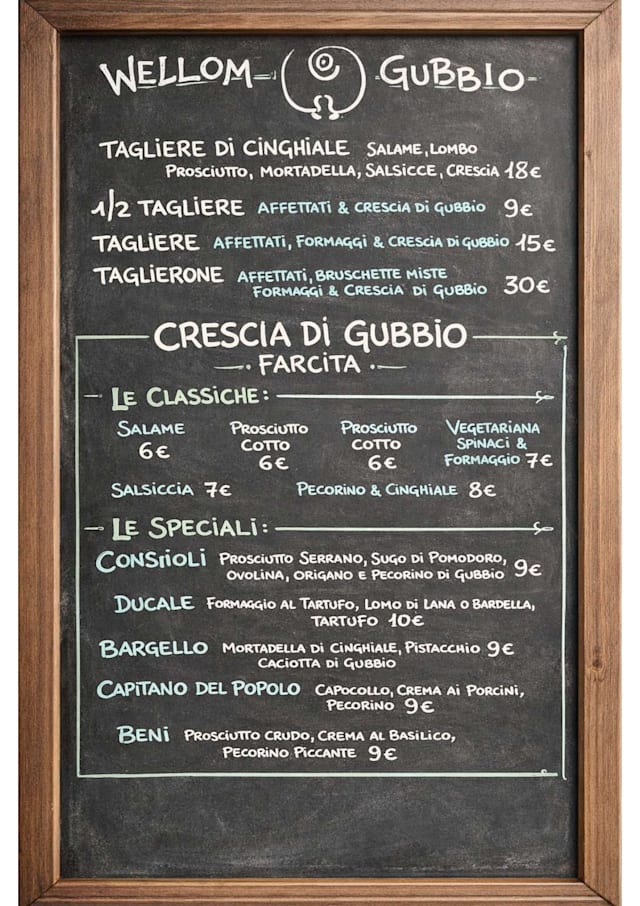 WELLOM GUBBIO
TAGLIERE Di CiNGHiALE SALAME, LOMBO
PROSCiUTTO, MORTADELLA, SALSICCE, CRESCiA 18€
1/2 TAGLIERE AFFETTATi & CRESCiA Di GUBBiO 9€
TAGLIERE AFFETTATi, FORMAGGi & CRESCiA Di GUBBiO 15€
TAGLiERONE AFFETTATi, BRUSCHETTE MiSTE
FORMAGGi & CRESCiA Di GUBBiO 30€
CRESCiA Di GUBBiO
FARCiTA
LE CLASSiCHE:
SALAME PROSCiUTTO PROSCiUTTO VEGETARiANA
6€ COTTO COTTO SPiNACi &
6€ 6€ FORMAGGiO 7€
SALSiCCiA 7€ PECORiNO & CiNGHiALE 8€
LE SPECiALi:
CONSiiOLi PROSCiUTTO SERRANO, SUGO Di POMODORO,
OVOLiNA, ORiGANO E PECORiNO Di GUBBiO 9€
DUCALE FORMAGGiO AL TARTUFO, LOMO Di LANA O BARDELLA,
TARTUFO 10€
BARGELLO MORTADELLA Di CiNGHiALE, PiSTACCHiO 9€
CACiOTTA Di GUBBiO
CAPiTANO DEL POPOLO CAPOCOLLO, CREMA Ai PORCiNi,
PECORiNO 9€
BENi PROSCiUTTO CRUDO, CREMA AL BASiLiCO,
PECORiNO PiCCANTE 9€